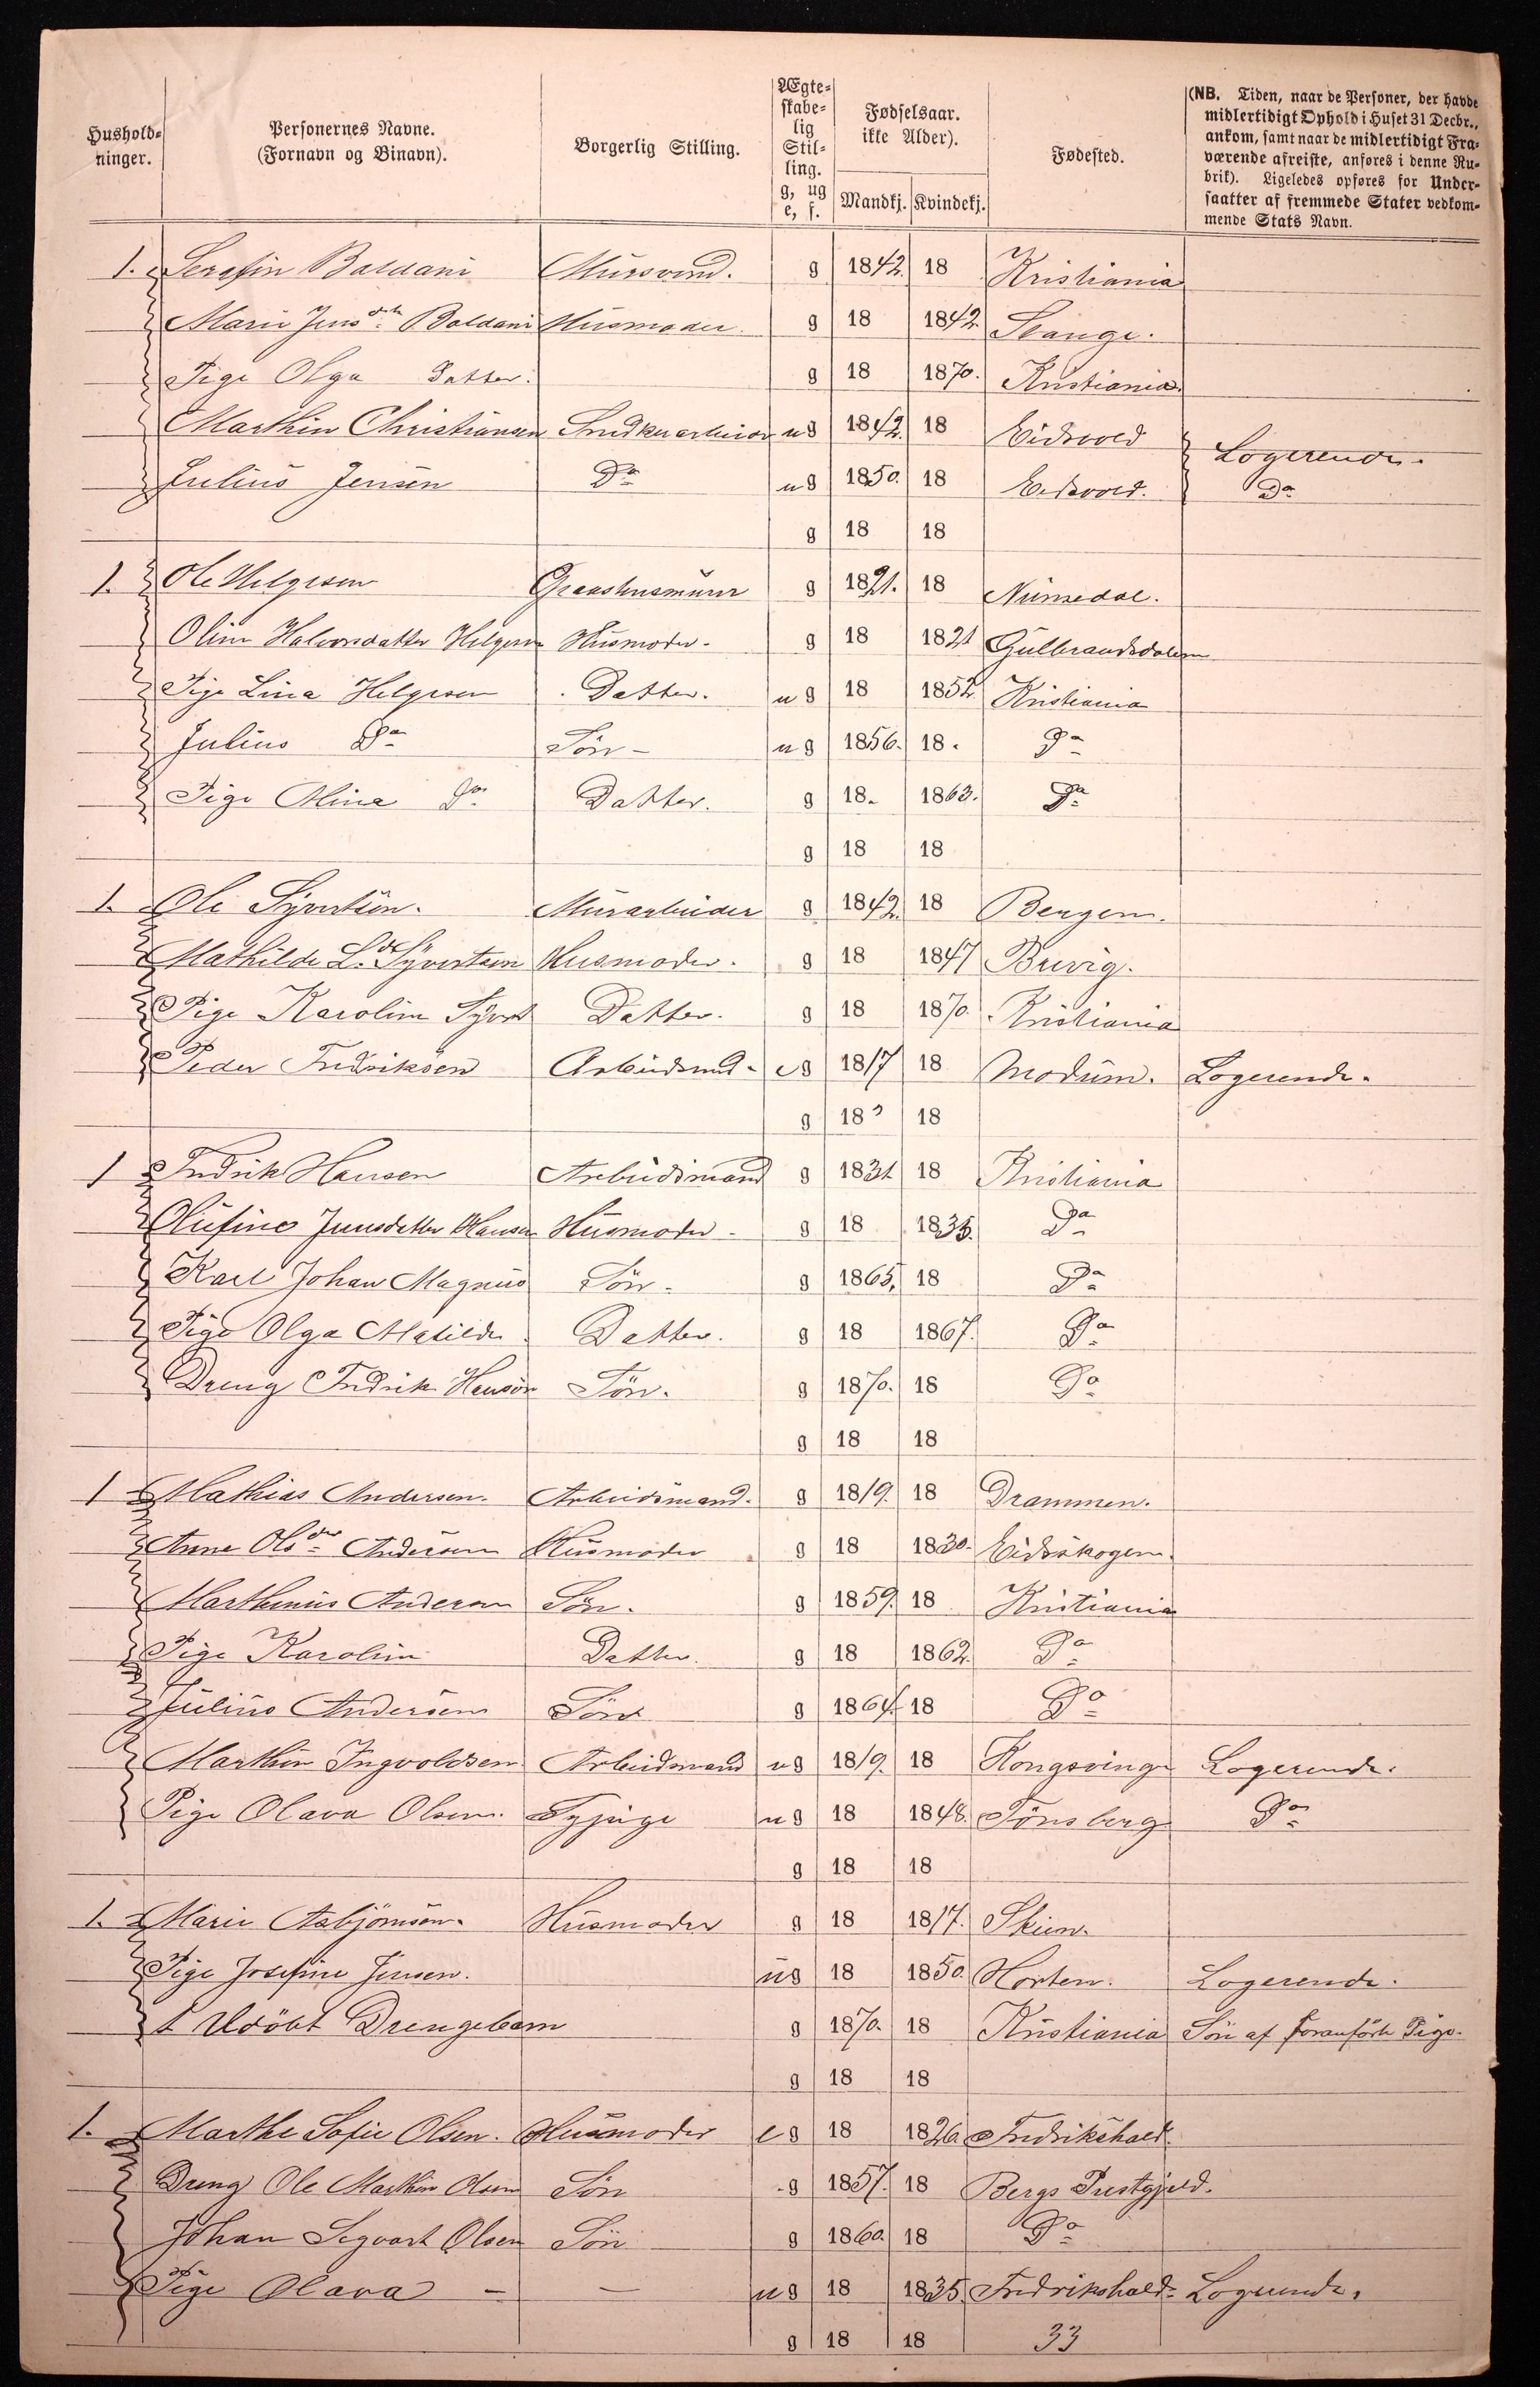 Hushold-
ninger.
Personernes Navne.
(Fornavn og Binavn).
Borgerlig Stilling.
Ægte-
skabe-
lig
Stil-
ling.
g, ug
e, f.
Fødselsaar.
ikke Alder).
Mandkj. Kvindekj.
Fødested.
(NB. Tiden, naar de Personer, der havde
midlertidigt Ophold i Huset 31 Decbr.,
ankom, samt naar de midlertidigt Fra-
værende afreiste, anføres i denne Ru-
brik). Ligeledes opføres for Under-
saatter af fremmede Stater vedkom-
mende Stats Navn.
1. Serafin Baldani Mursvend. g 1842. 18 Kristiania
Marie Jensdtr Baldani Husmoder. g 18 1842. Stange.
Pige Olga Datter. g 18 1870. Kristiania.
Marthin Christiansen ug 1842. 18 Eidsvold Logerende.
Julius Jensen Do ug 1850. 18 Eidsvold. Do
g 18 18
1. Ole Helgesen g 1821. 18 Numedal.
Oline Halvorsdatter Helgesen Husmoder. g 18 1821 Gulbrandsdalen
Pige Lina Helgesen Datter. ug 18 1852. Kristiania
Julius Do Sön - ug 1856. 18. Do
Pige Olina Do Datter. g 18. 1863. Do
g 18 18
1. Ole Syvertsen. Murarbeider g 1842. 18 Bergen.
Mathilde L. dr Syvertsen Husmoder. g 18 1847 Brevig.
Pige Karoline Syvert Datter. g 18 1870. Kristiania
Peder Fredriksen Arbeidsmd. eg 1817 18 Modum. Logerende.
g 18 18
1 Fredrik Hansen Arbeidsmand g 1831 18 Kristiania
Olufine Jensdatter Hansen Husmoder. g 18 1835. Do
Karl Johan Magnus Sön. g 1865. 18 Do
Pige Olga Matilde Datter. g 18 1867. Do
Dreng Fredrik Hansen Sön. g 1870. 18 Do
g 18 18
1 Mathias Andersen. Arbeidsmand. g 1819. 18 Drammen.
Anne Olsdr Andersen Husmoder g 18 1830. Eidskogen.
Marthinius Andersen Sön. g 1859. 18 Kristiania
Pige Karoline Datter. g 18 1862. Do
Julius Andersen Sön g 1864. 18 Do
Marthin Ingvoldsen Arbeidsmand ug 1819. 18 Kongsvinger Logerende.
Pige Olava Olsen. Sypige ug 18 1848. Tönsberg Do
g 18 18
1. Marie Asbjörnsen. Husmoder g 18 1817. Skien.
Pige Josefine Jensen. ug 18 1850. Horten. Logerende.
1 Udöbt Drengebarn g 1870. 18 Kristiania Sön af foranförte Pige.
g 18 18
1. Marthe Sofie Olsen. Husmoder eg 18 1826. Fredrikshald.
Dreng Ole Marthin Olsen Sön g 1857. 18 Bergs Prestgjeld.
Johan Segvart Olsen Sön g 1860. 18 Do
Pige Olava - — ug 18 1835. Fredrikshald. Logerende.
g 18 18 33